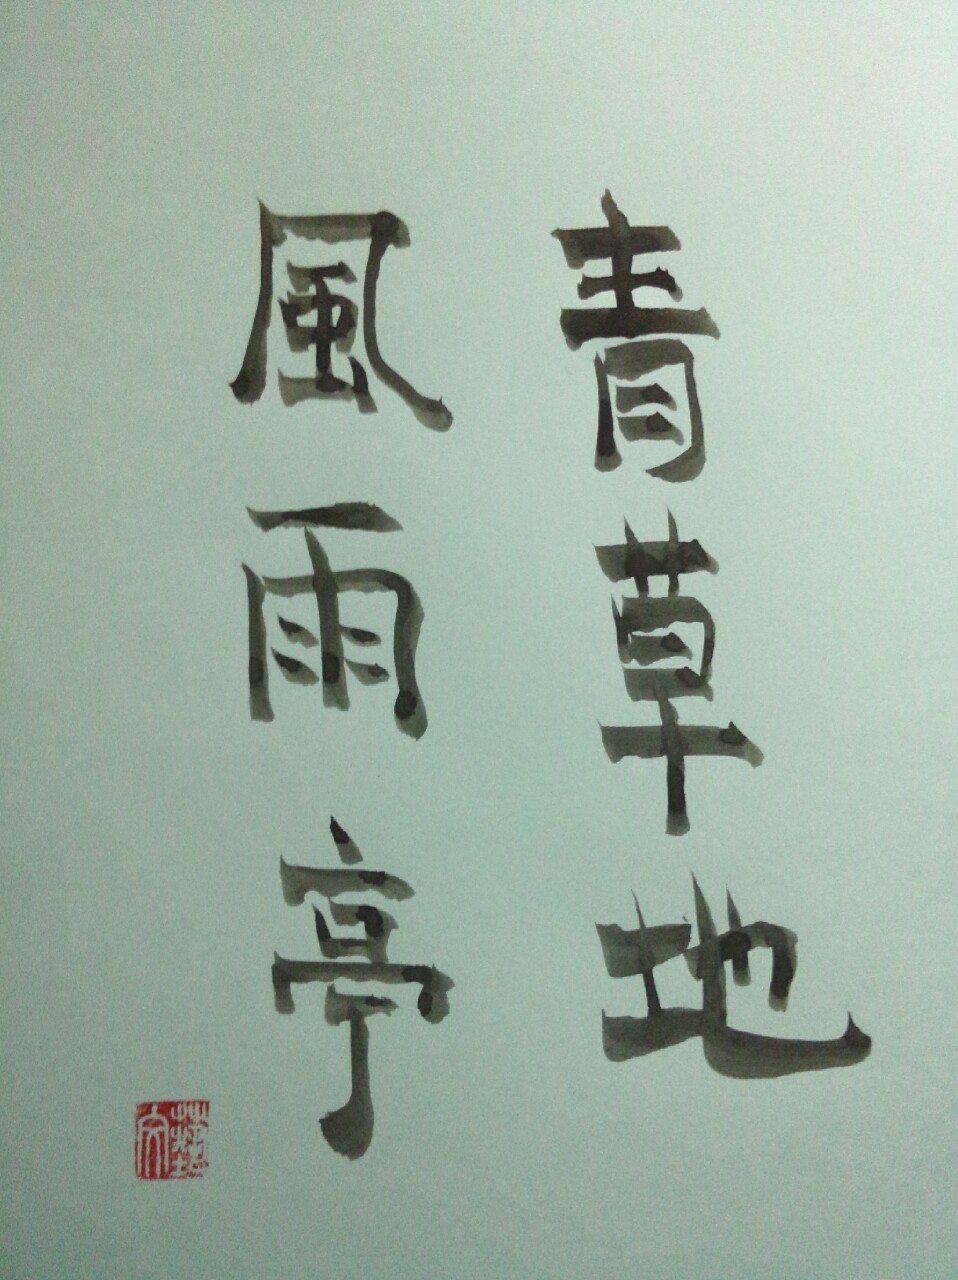 青草地
風雨亭